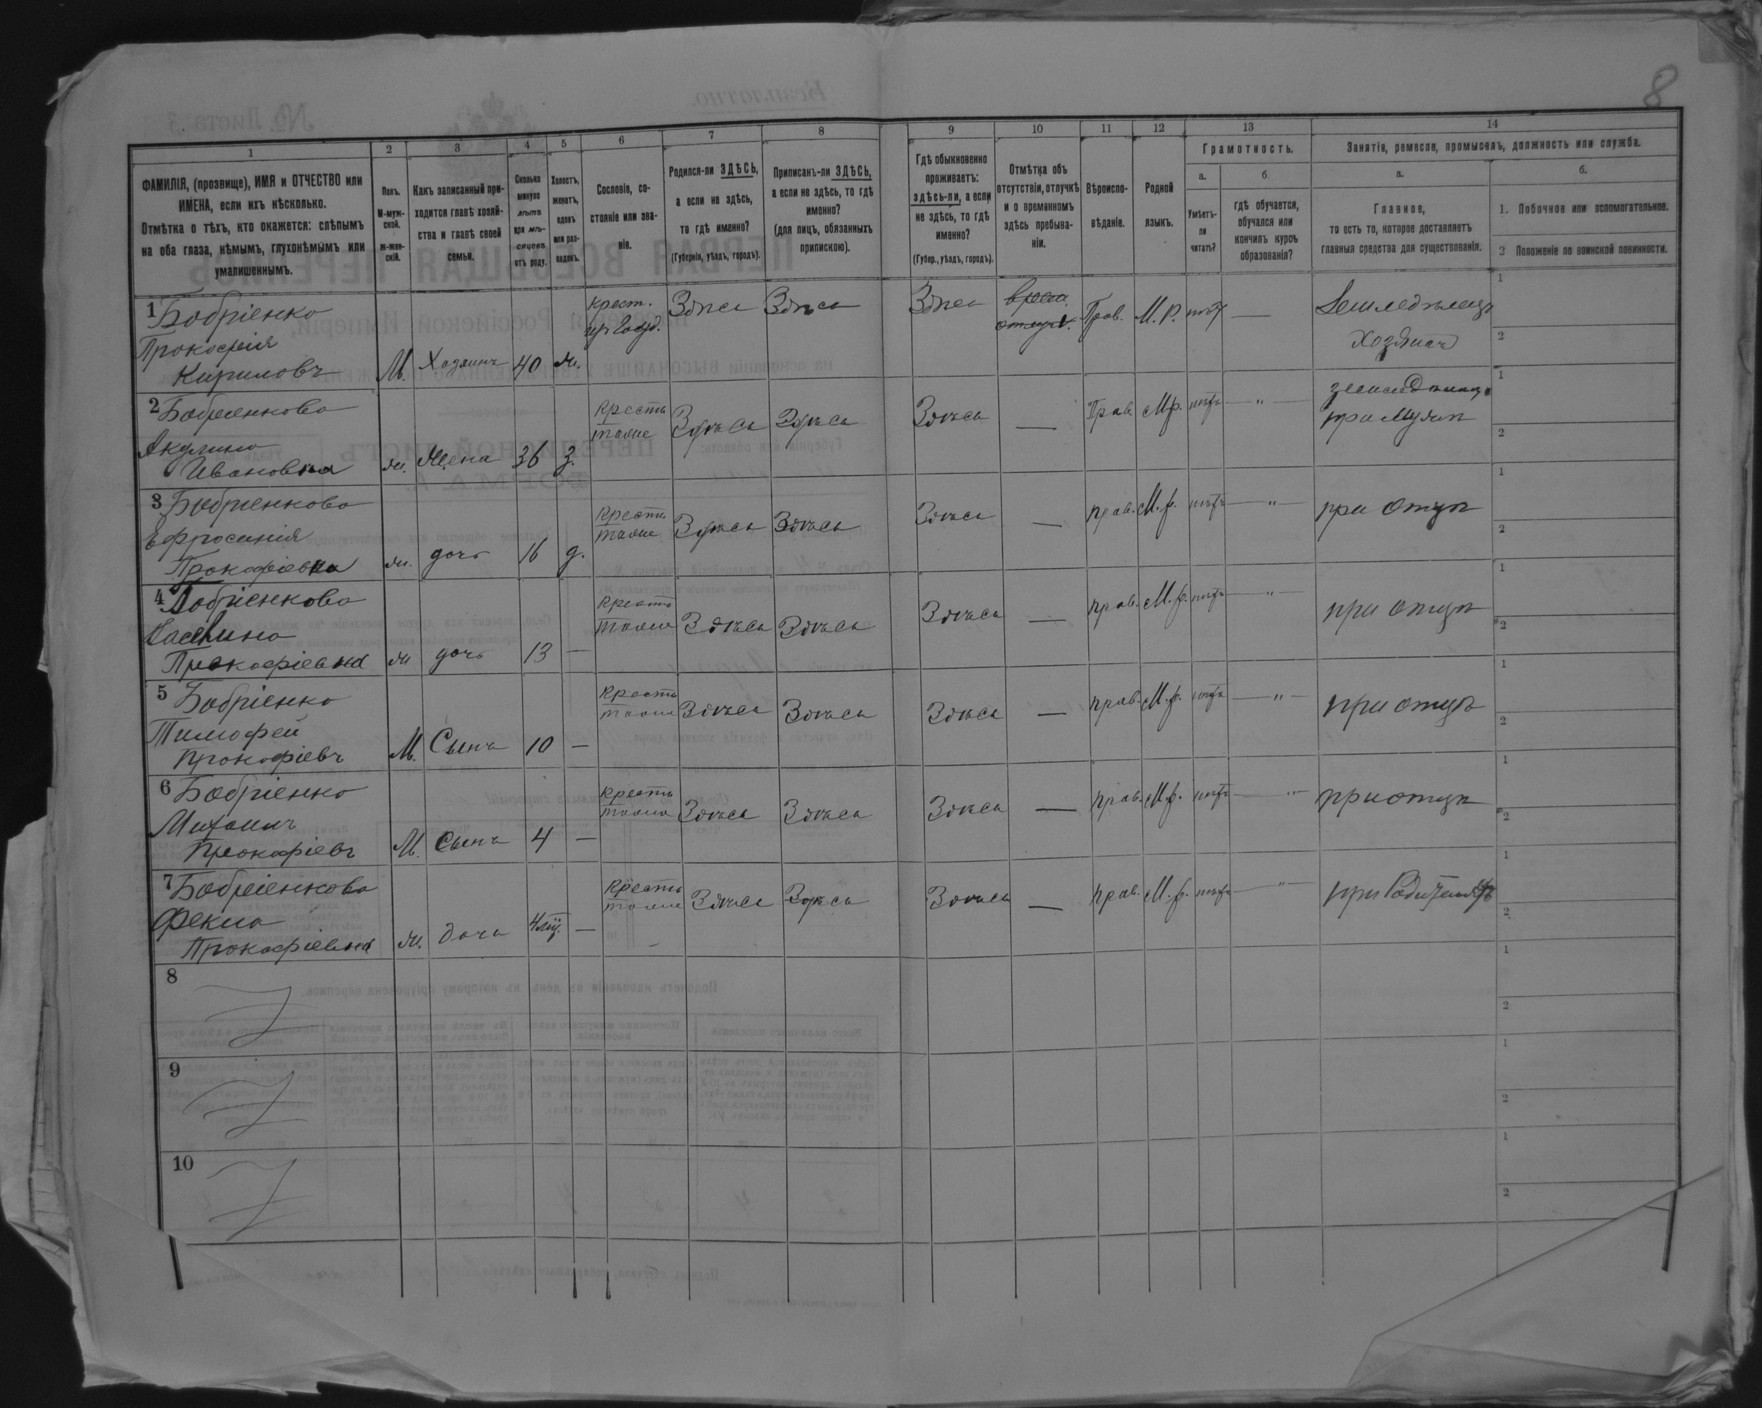 8
1
2
3
4
5
6
7
8
9
10
11
12
13
14
ФАМИЛІЯ, (прозвище), ИМЯ и ОТЧЕСТВО или
ИМЕНА, если ихъ нѣсколько.
Отмѣтка о тѣхъ, кто окажется: слѣпымъ
на оба глаза, нѣмымъ, глухонѣмымъ или
умалишеннымъ.
Полъ.
М-муж-
ской.
ж-жен-
скій.
Какъ записанный при-
ходится главѣ хозяй-
ства и главѣ своей
семьи.
Сколько
минуло
лѣтъ
или мѣ-
сяцевъ
отъ роду.
Холостъ,
женатъ,
вдовъ
или раз-
веденъ.
Сословіе, со-
стояніе или зва-
ніе.
Родился-ли ЗДѢСЬ,
а если не здѣсь,
то гдѣ именно?
(Губернія, уѣздъ, городъ).
Приписанъ-ли ЗДѢСЬ,
а если не здѣсь, то гдѣ
именно?
(для лицъ, обязанныхъ
припискою).
Гдѣ обыкновенно
проживаетъ:
здѣсь-ли, а если
не здѣсь, то гдѣ
именно?
(Губер., уѣздъ, городъ).
Отмѣтка объ
отсутствіи, отлучкѣ
и о временномъ
здѣсь пребыва-
ніи.
Вѣроиспо-
вѣданіе.
Родной
языкъ.
Грамотность.
а.
Умѣетъ-
ли
читать?
б.
гдѣ обучается,
обучался или
кончилъ курсъ
образованія?
Занятія, ремесло, промыселъ, должность или служба.
а.
Главное,
то есть то, которое доставляетъ
главныя средства для существованія.
б.
1. Побочное или вспомогательное.
2 Положеніе по воинской повинности.
1 Бобріенко
Прокофій
Кириловъ
М. Хозяинъ 40 ж.
Крест.
Здѣсь Здѣсь Здѣсь
отлуч.
Прав. М.Р. нѣтъ —
Земледѣлецъ
Хозяинъ
1
2
2 Бобріенкова
Акулина
Ивановна
ж. Жена 36 з.
Кресть
янка
Здѣсь Здѣсь Здѣсь — Прав. М.р. нѣтъ — " —
земледѣлица
при Мужѣ
1
2
3 Бобріенкова
Ефросинія
Прокофіевна
ж. дочь 16 д.
Кресть
янка
Здѣсь Здѣсь Здѣсь — прав. М.р. нѣтъ — " — при отцѣ
1
2
4 Бобріенкова
Прокофіевна
ж дочь 13 —
Кресть
янка
Здѣсь Здѣсь Здѣсь — прав. М.р. нѣтъ — " — при отцѣ
1
2
5 Бобріенко
Тимофей
Прокофіевъ
М. Сынъ 10 —
Кресть
Здѣсь Здѣсь Здѣсь — прав. М.р. нѣтъ — " — при отцѣ
1
2
6 Бобріенко
Михаилъ
Прокофіевъ
М. Сынъ 4 —
Кресть
Здѣсь Здѣсь Здѣсь — прав. М.р. нѣтъ — " — при отцѣ
1
2
7 Бобріенкова
Фекла
Прокофіевна
ж. дочь —
Кресть
янка
Здѣсь Здѣсь Здѣсь — прав. М.р. нѣтъ — " — при Родителяхъ
1
2
8
1
2
9
1
2
10
1
2